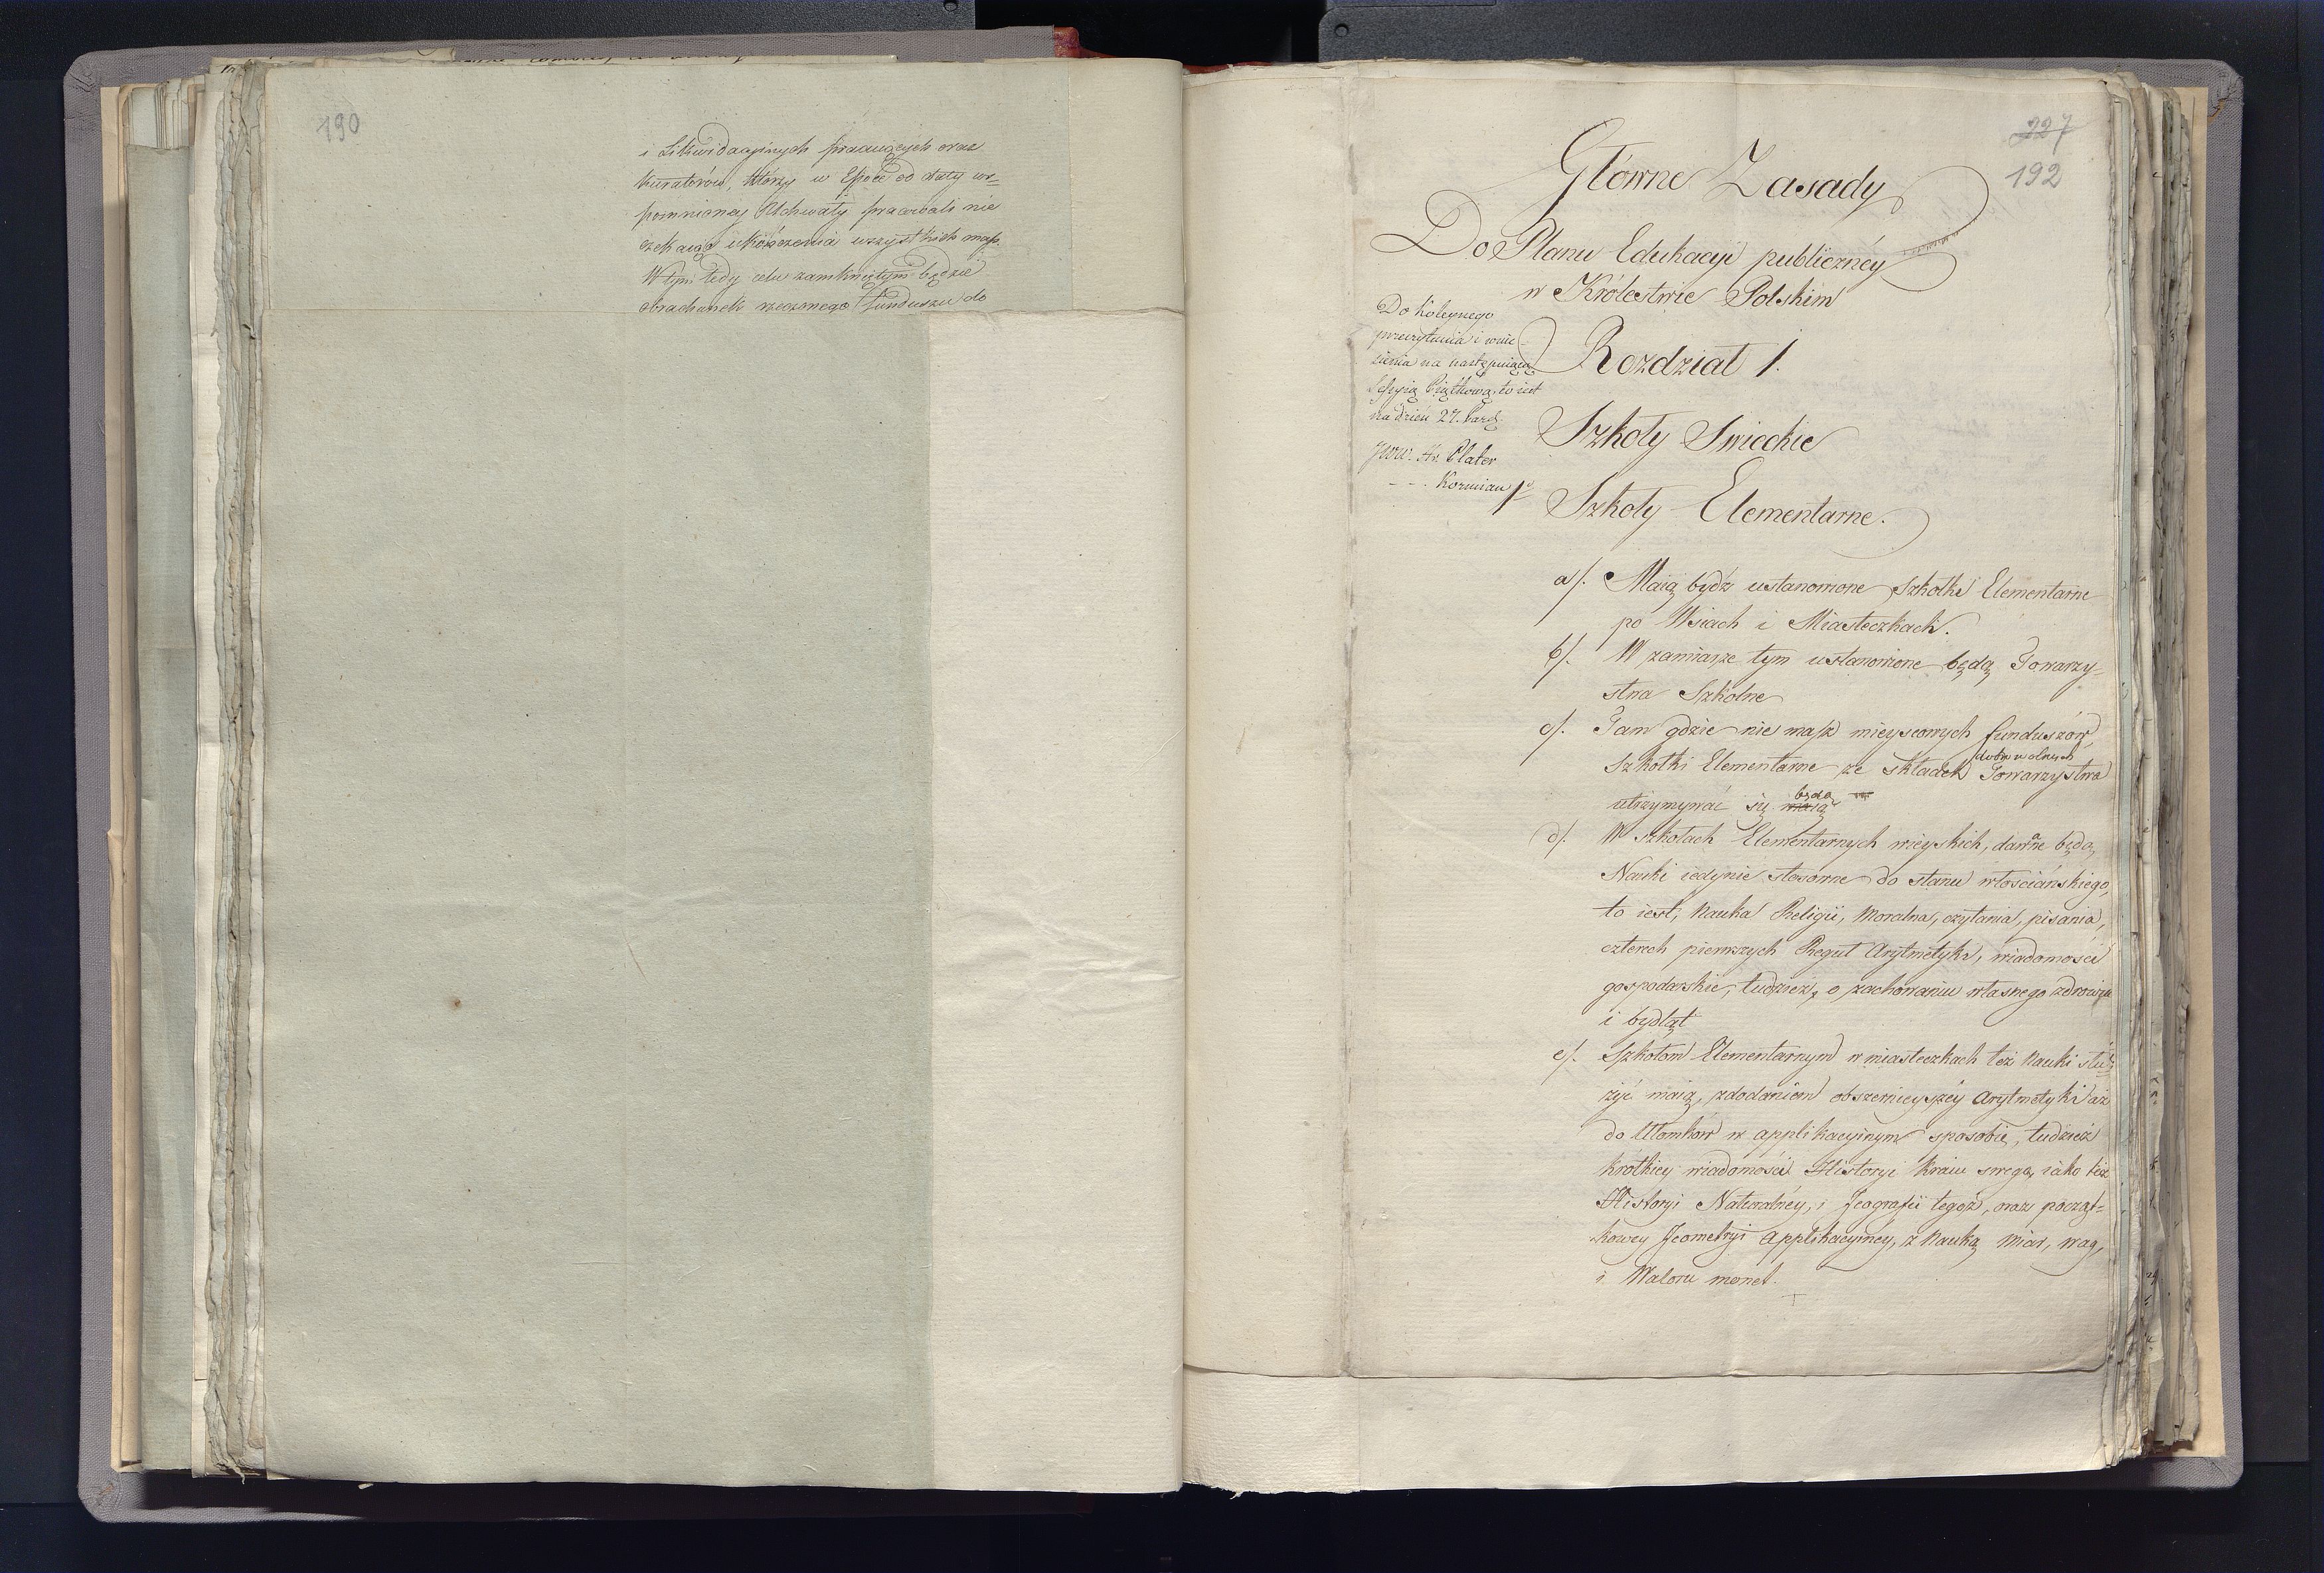 190
i Likwidacyinych pracuiących oraz
Kuratorów, którzy w Epoce od daty ws-
pomnioney Uchwały pracowali nie
czekaiąc ukończenia wszystkich mass.
W tym tedy celu zamkniętym będzie
obrachunek rzeczonego funduszu do
227
192
Główne Zasady
Do Planu Edukacyi publicznéy
w Królestwie Polskim
Do koleynego
przeczytania i wnie-
sienia na następuiącą
Sessyią Piątkową, to iest
na dzień 27. Paźd.
JWW. Hr. Plater
- - . Kozmian
Rozdział 1.
Szkoły Swieckie
1o Szkoły Elementarne.
a/. Maią bydź ustanowione Szkołki Elementarne
po Wsiach i Miasteczkach.
b/. W zamiarze tym ustanowione będą Towarzy-
stwa Szkolne
c/. Tam gdzie nie masz mieyscowych funduszów
dobrowolnych
Szkołki Elementarne ze składek Towarzystwa
będą
utrzymywać się maią
d/. W Szkołach Elementarnych wieyskich, dawane będą
Nauki iedynie stosowne do stanu włosciańskiego,
to iest, Nauka Religii, Moralna, czytania, pisania,
czterech pierwszych Reguł Arytmetyki, wiadomości
gospodarskie, tudzież, o zachowaniu własnego zdrowia
i bydląt
e/. Szkołom Elementarnym w miasteczkach też Nauki słu-
żyć maią, z dodaniem obszernieyszéy Arytmetyki aż
do Ułomków w applikacyinym sposobie, tudzież
krotkiey wiadomości Historyi Kraiu swego, iako też
Historyi Naturalnéy, i Jeografii tegoż, oraz począt-
kowey Jeometryi Applikacyiney, z Nauką Miar, wag,
i Waloru monet.